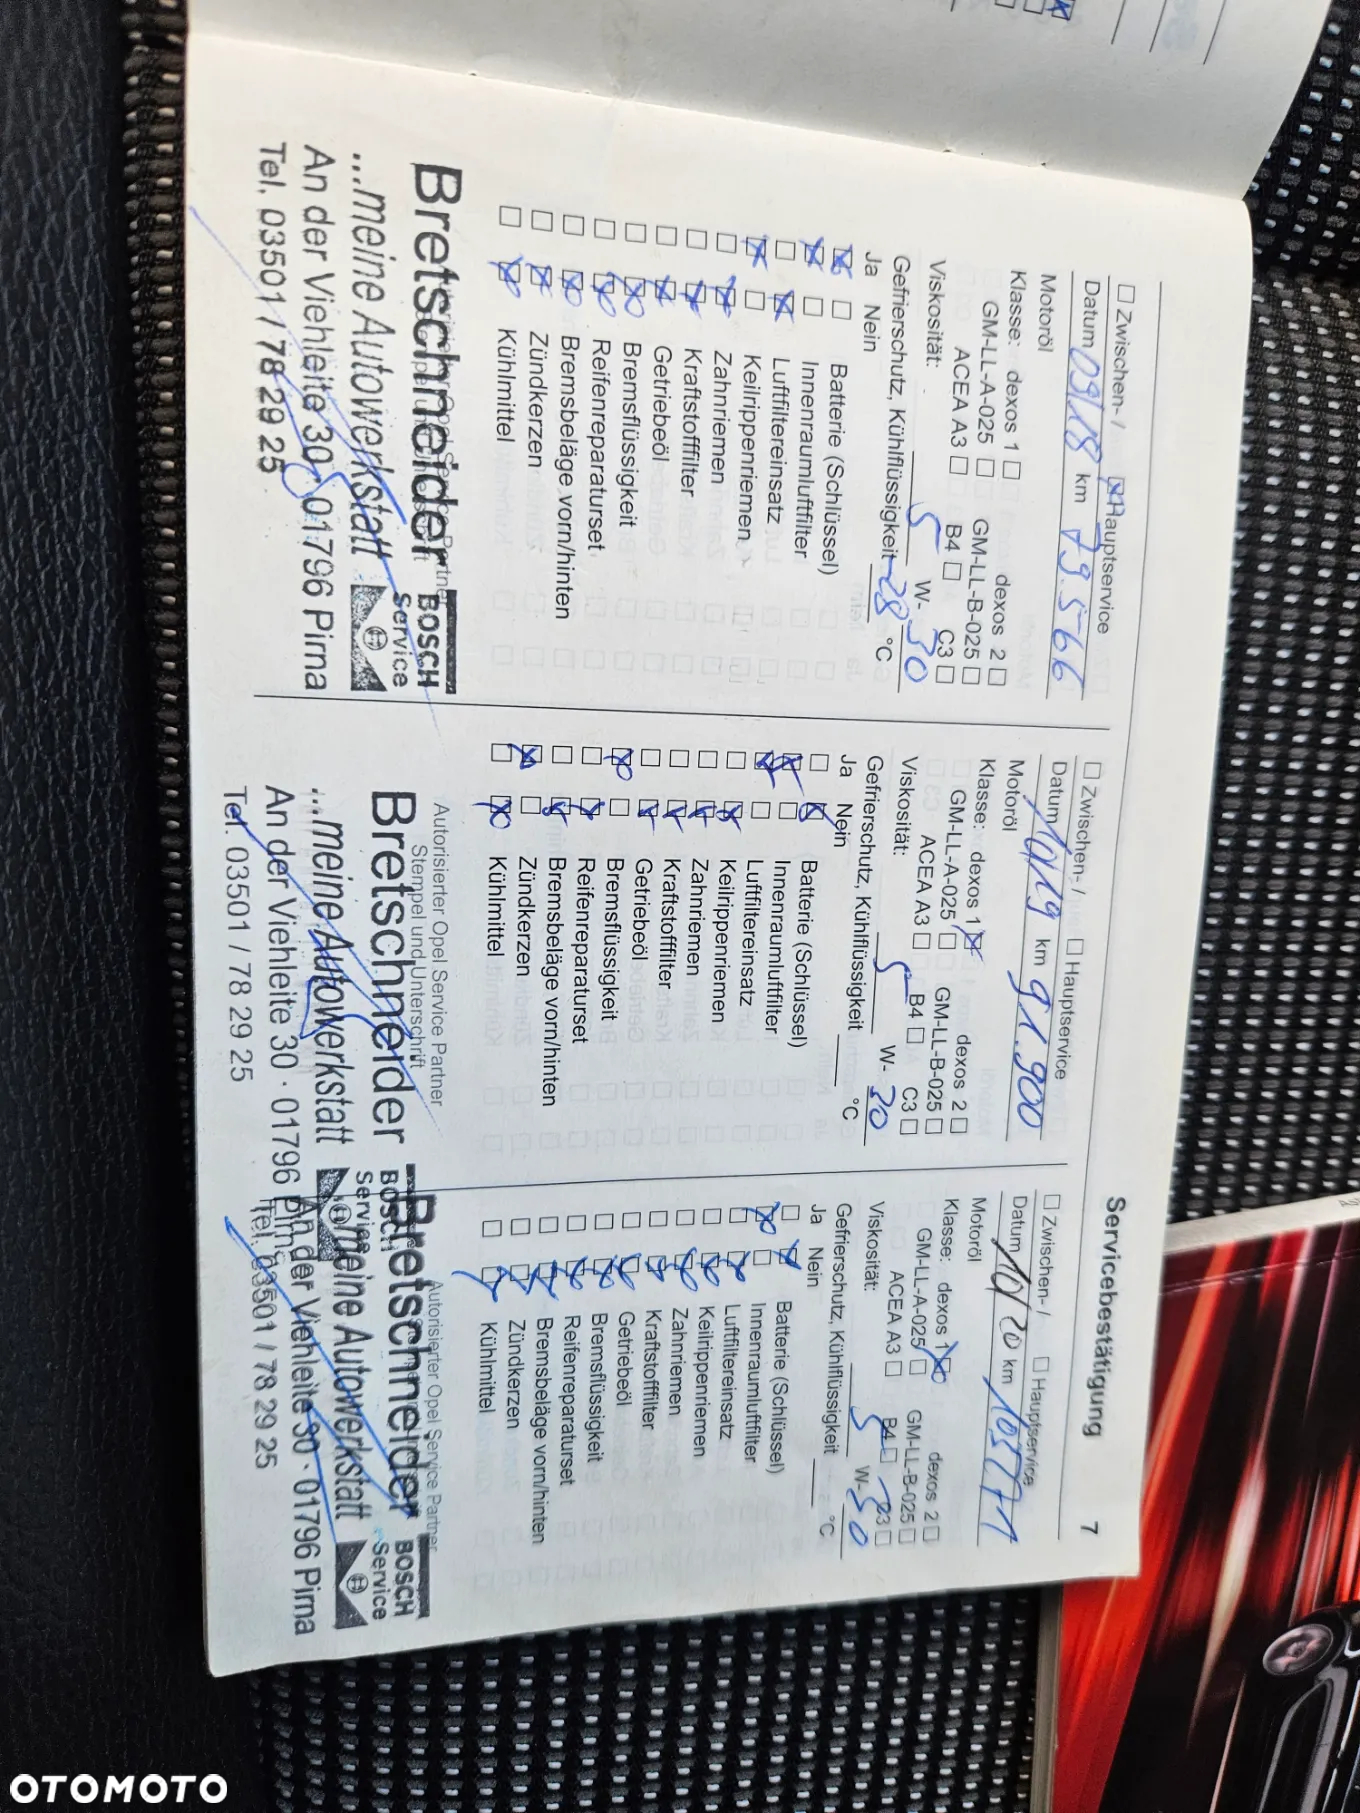 Servicebestätigung 7
☐ Zwischen- / ☒ Hauptservice
Datum 09/18 km 79.566
Motoröl
Klasse: dexos 1 ☐ dexos 2 ☐
GM-LL-A-025 ☐ GM-LL-B-025 ☐
ACEA A3 ☐ B4 ☐ C3 ☐
Viskosität: 5 W- 30
Gefrierschutz, Kühlflüssigkeit -28 °C
Ja Nein
☒ ☐ Batterie (Schlüssel)
☒ ☐ Innenraumluftfilter
☐ ☒ Luftfiltereinsatz
☒ ☐ Keilrippenriemen
☐ ☒ Zahnriemen
☐ ☒ Kraftstofffilter
☐ ☒ Getriebeöl
☐ ☒ Bremsflüssigkeit
☐ ☒ Reifenreparaturset
☐ ☒ Bremsbeläge vorn/hinten
☐ ☒ Zündkerzen
☐ ☒ Kühlmittel
Bretschneider BOSCH
...meine Autowerkstatt Service
An der Viehleite 30 · 01796 Pirna
Tel. 03501 / 78 29 25
☐ Zwischen- / ☐ Hauptservice
Datum 10/19 km 91.900
Motoröl
Klasse: dexos 1 ☒ dexos 2 ☐
GM-LL-A-025 ☐ GM-LL-B-025 ☐
ACEA A3 ☐ B4 ☐ C3 ☐
Viskosität: 5 W- 30
Gefrierschutz, Kühlflüssigkeit °C
Ja Nein
☐ ☒ Batterie (Schlüssel)
☒ ☐ Innenraumluftfilter
☒ ☐ Luftfiltereinsatz
☐ ☒ Keilrippenriemen
☐ ☒ Zahnriemen
☐ ☒ Kraftstofffilter
☐ ☒ Getriebeöl
☒ ☐ Bremsflüssigkeit
☐ ☒ Reifenreparaturset
☐ ☒ Bremsbeläge vorn/hinten
☒ ☐ Zündkerzen
☐ ☒ Kühlmittel
Autorisierter Opel Service Partner
Stempel und Unterschrift
Bretschneider BOSCH
...meine Autowerkstatt Service
An der Viehleite 30 · 01796 Pirna
Tel. 03501 / 78 29 25
☐ Zwischen- / ☐ Hauptservice
Datum 10/20 km 105771
Motoröl
Klasse: dexos 1 ☒ dexos 2 ☐
GM-LL-A-025 ☐ GM-LL-B-025 ☐
ACEA A3 ☐ B4 ☐ C3 ☐
Viskosität: 5 W- 30
Gefrierschutz, Kühlflüssigkeit °C
Ja Nein
☐ ☒ Batterie (Schlüssel)
☒ ☐ Innenraumluftfilter
☐ ☒ Luftfiltereinsatz
☐ ☒ Keilrippenriemen
☐ ☒ Zahnriemen
☐ ☒ Kraftstofffilter
☐ ☒ Getriebeöl
☐ ☒ Bremsflüssigkeit
☐ ☒ Reifenreparaturset
☐ ☒ Bremsbeläge vorn/hinten
☐ ☒ Zündkerzen
☐ ☒ Kühlmittel
Autorisierter Opel Service Partner
Bretschneider BOSCH
...meine Autowerkstatt Service
An der Viehleite 30 · 01796 Pirna
Tel. 03501 / 78 29 25
OTOMOTO